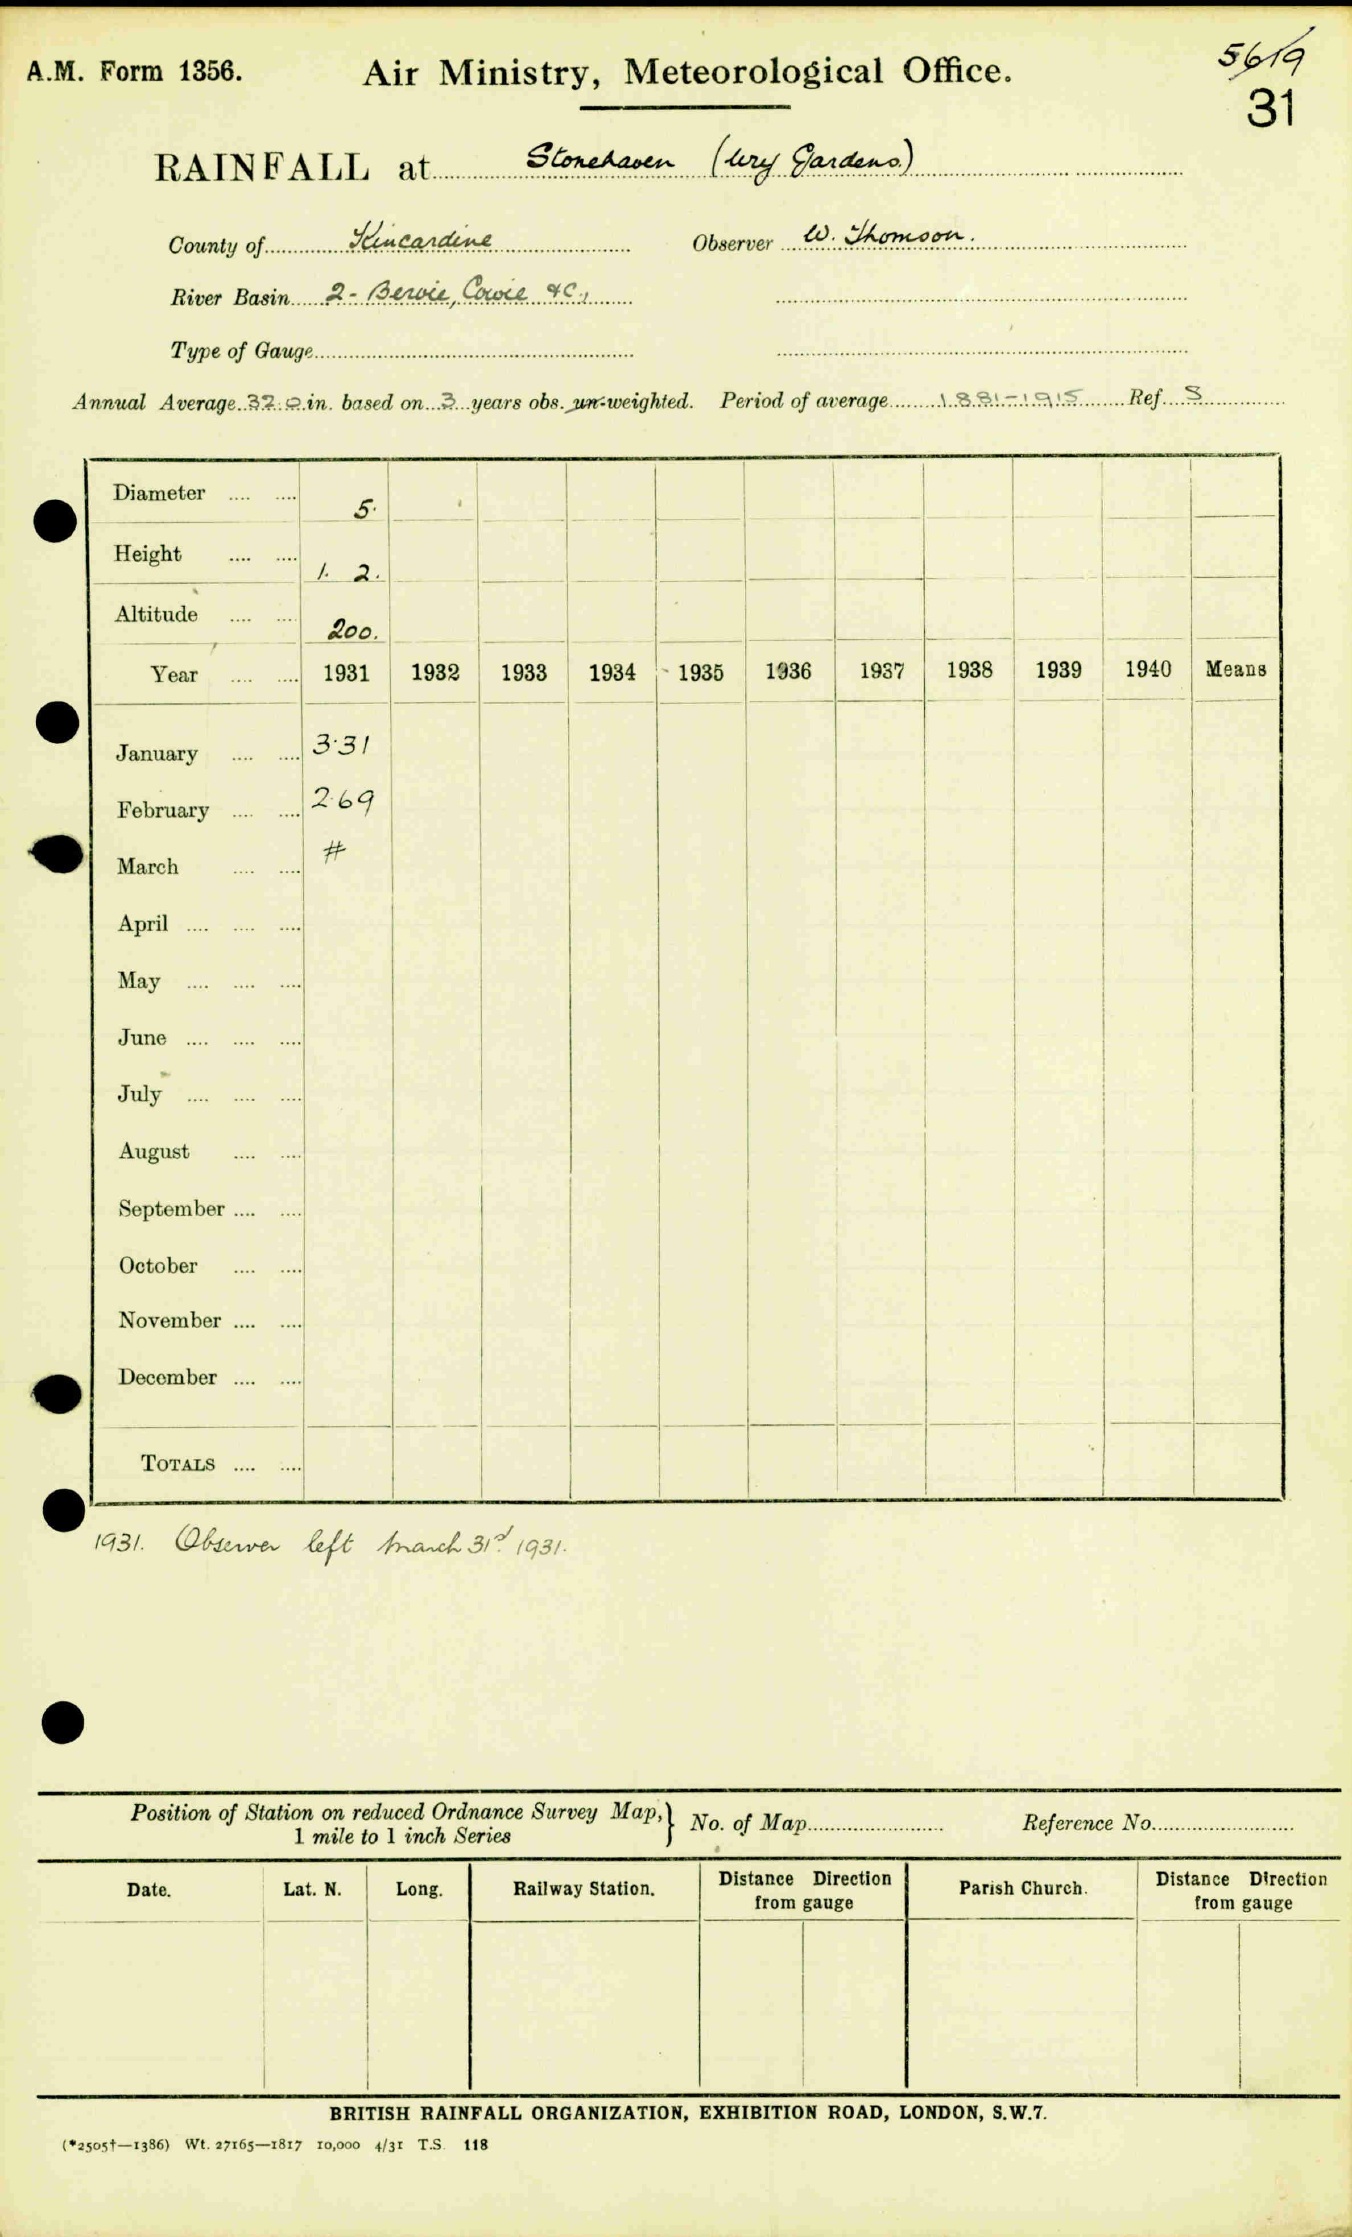 A.M. Form 1356.
Air Ministry, Meteorological Office.
5619
31
RAINFALL at Stonehaven (Ury Gardens.)
County of Kincardine Observer W. Thomson.
River Basin 2 - Bervie, Cowie &c.,
Type of Gauge
Annual Average 32.0 in. based on 3 years obs. un-weighted. Period of average 1881-1915 Ref. S
Diameter .... .... 5.
Height .... .... 1. 2.
Altitude .... .... 200.
Year .... .... 1931 1932 1933 1934 1935 1936 1937 1938 1939 1940 Means
January .... .... 3.31
February .... .... 2.69
March .... .... #
April .... .... ....
May .... .... ....
June .... .... ....
July .... .... ....
August .... ....
September .... ....
October .... ....
November .... ....
December .... ....
TOTALS .... ....
1931. Observer left March 31st 1931.
Position of Station on reduced Ordnance Survey Map,
1 mile to 1 inch Series
No. of Map Reference No.
Date. Lat. N. Long. Railway Station. Distance Direction from gauge Parish Church. Distance Direction from gauge
BRITISH RAINFALL ORGANIZATION, EXHIBITION ROAD, LONDON, S.W.7.
(*2505†—1386) Wt. 27165—1817 10,000 4/31 T.S. 118